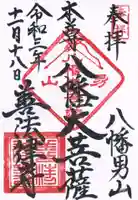 奉拝
八幡男山
本尊
八幡大菩薩
善法律寺
令和三年
十一月十八日
男
山